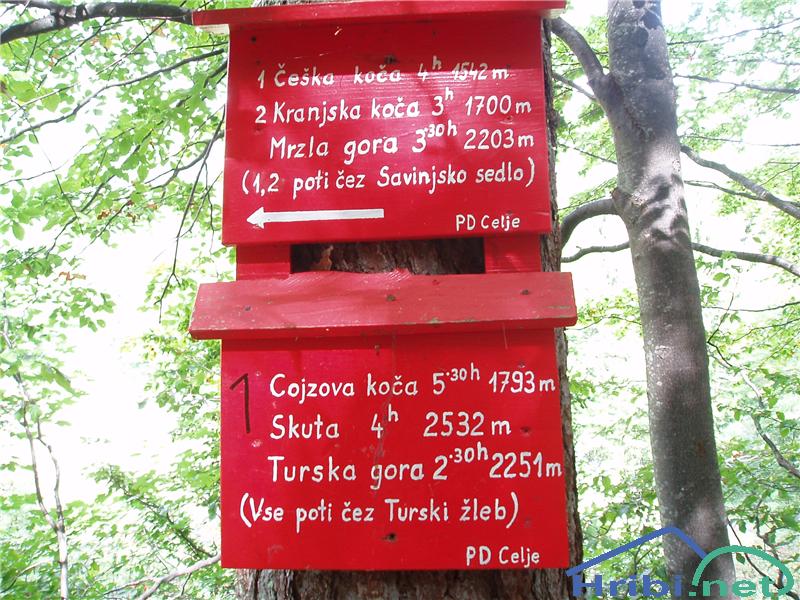 1 Češka koča 4h 1542 m
2 Kranjska koča 3h 1700 m
Mrzla gora 3.30h 2203 m
(1,2 poti čez Savinjsko sedlo)
PD Celje
1 Cojzova koča 5.30h 1793 m
Skuta 4h 2532 m
Turska gora 2.30h 2251 m
(Vse poti čez Turski žleb)
PD Celje
Hribi.net